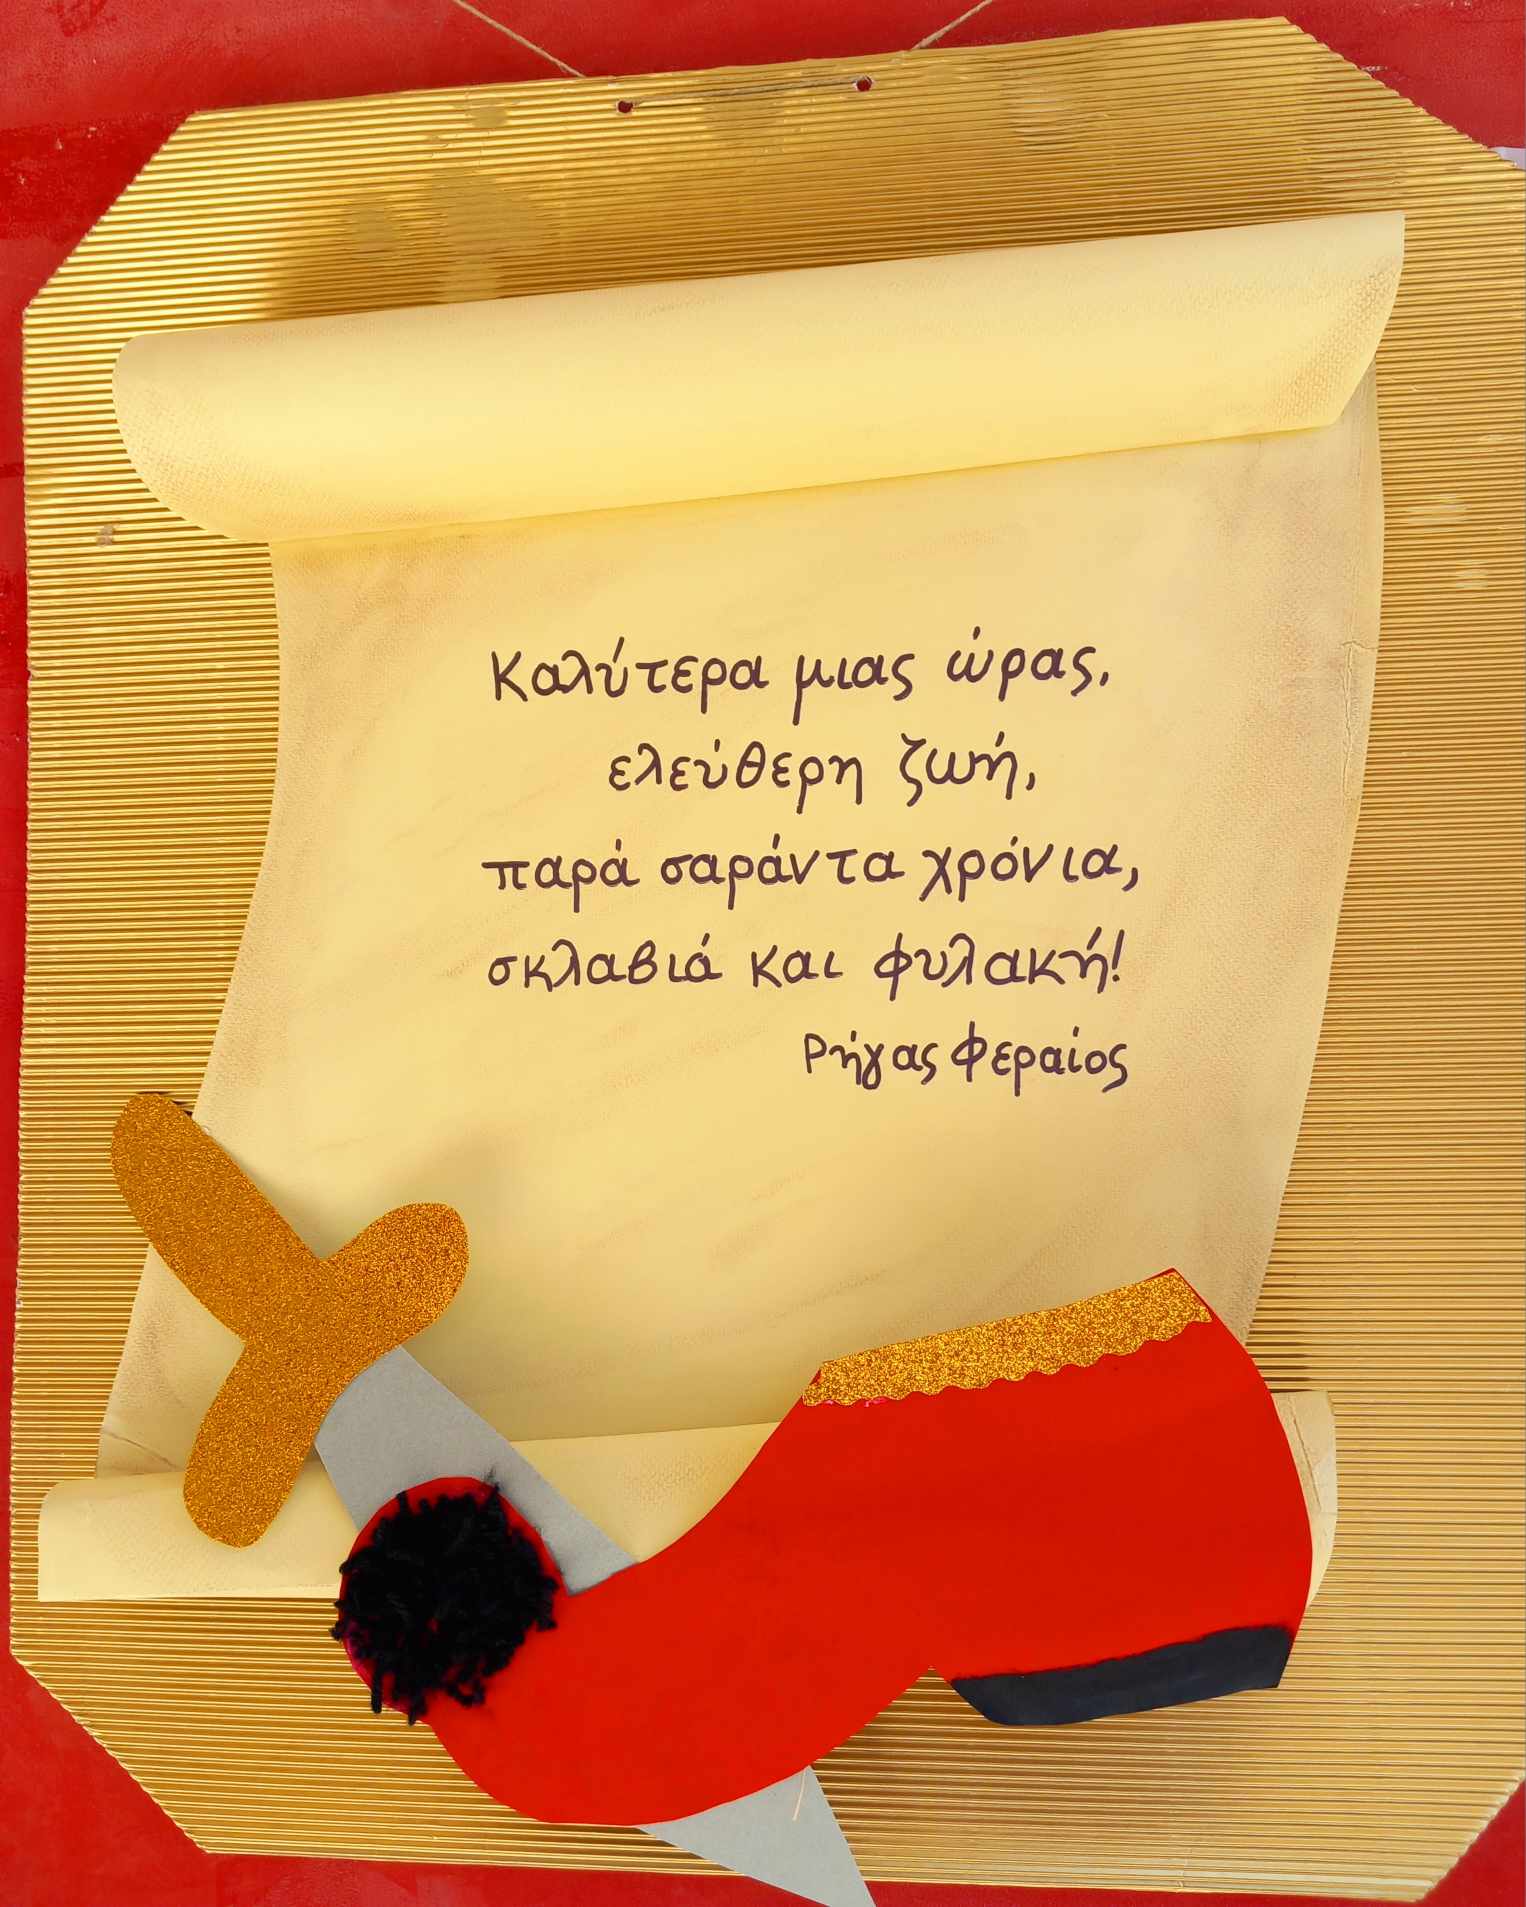 Καλύτερα μιας ώρας,
ελεύθερη ζωή,
παρά σαράντα χρόνια,
σκλαβιά και φυλακή!
Ρήγας Φεραίος